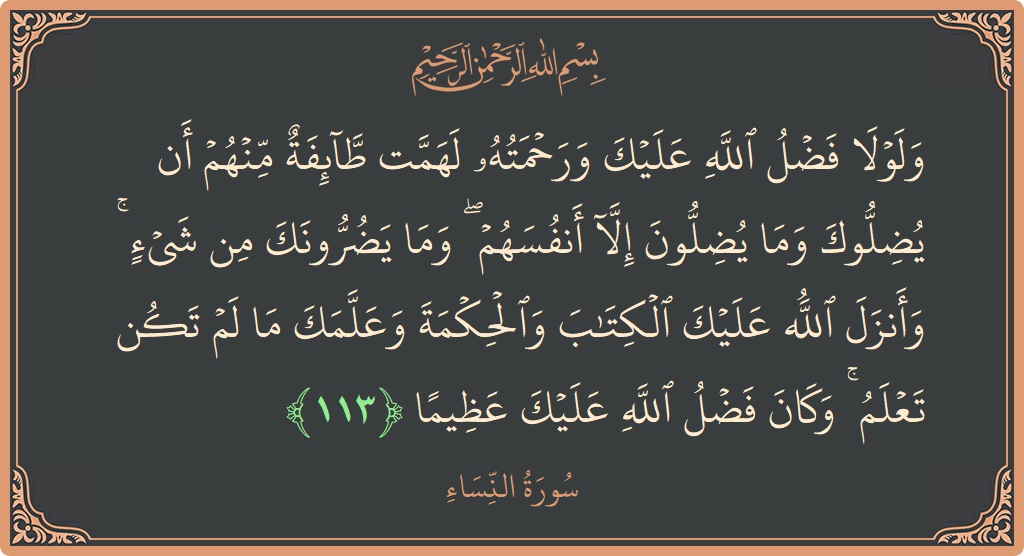 بِسْمِ اللَّهِ الرَّحْمَٰنِ الرَّحِيمِ
وَلَوْلَا فَضْلُ ٱللَّهِ عَلَيْكَ وَرَحْمَتُهُۥ لَهَمَّت طَّآئِفَةٌ مِّنْهُمْ أَن
يُضِلُّوكَ وَمَا يُضِلُّونَ إِلَّآ أَنفُسَهُمْ ۖ وَمَا يَضُرُّونَكَ مِن شَىْءٍ ۚ
وَأَنزَلَ ٱللَّهُ عَلَيْكَ ٱلْكِتَٰبَ وَٱلْحِكْمَةَ وَعَلَّمَكَ مَا لَمْ تَكُن
تَعْلَمُ ۚ وَكَانَ فَضْلُ ٱللَّهِ عَلَيْكَ عَظِيمًا ﴿١١٣﴾
سُورَةُ النِّسَاءِ